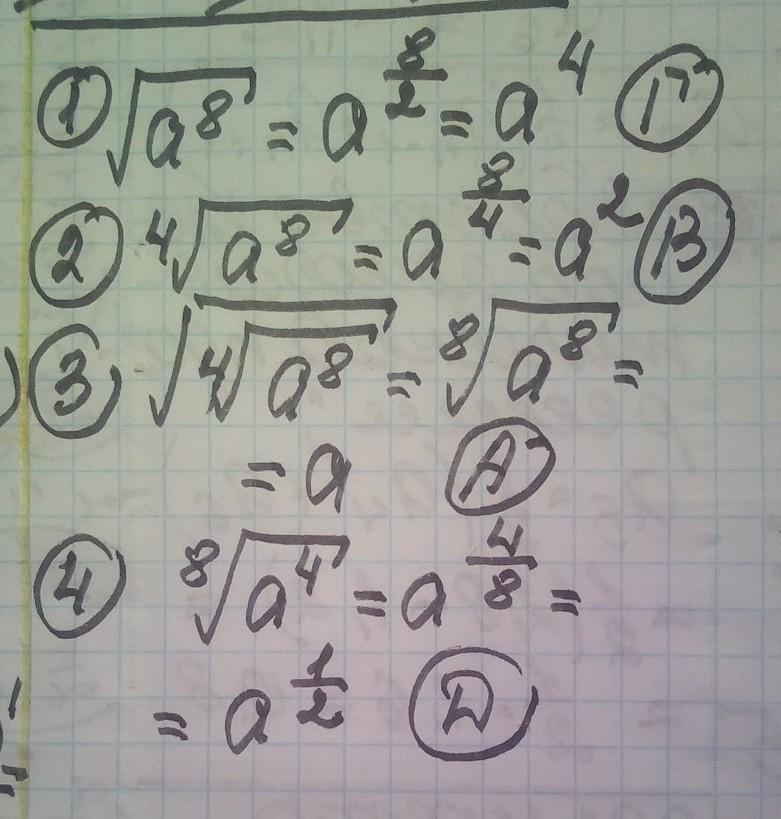 ① √a⁸ = a^(8/2) = a⁴ Г
② ⁴√a⁸ = a^(8/4) = a² В
③ √⁴√a⁸ = ⁸√a⁸ =
= a А
④ ⁸√a⁴ = a^(4/8) =
= a^(1/2) Д